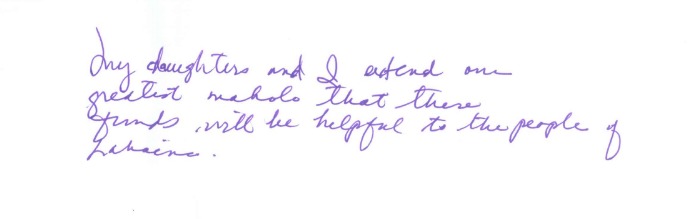 My daughters and I extend our
greatest mahalo that these
funds will be helpful to the people of
Lahaina.